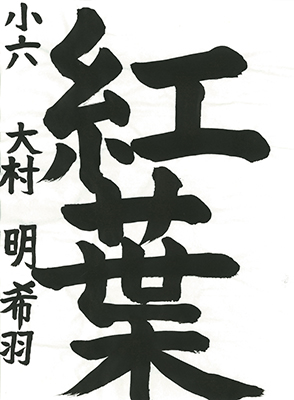 紅葉
小六 大村 明希羽